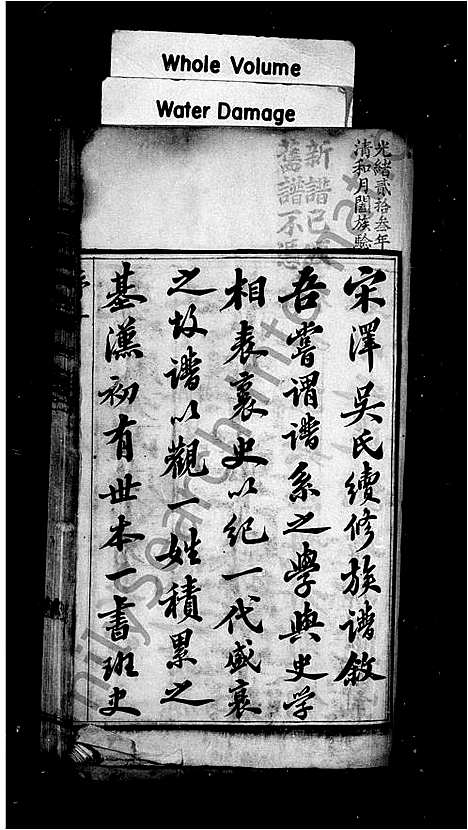 Whole Volume
Water Damage
光緒貳拾叁年
清和月闔族驗
新譜已
舊譜不憑
宋澤吳氏續修族譜敘
吾嘗謂譜系之學與史学
相表裏史以紀一代盛衰
之故譜以觀一姓積累之
基漢初有世本一書班史